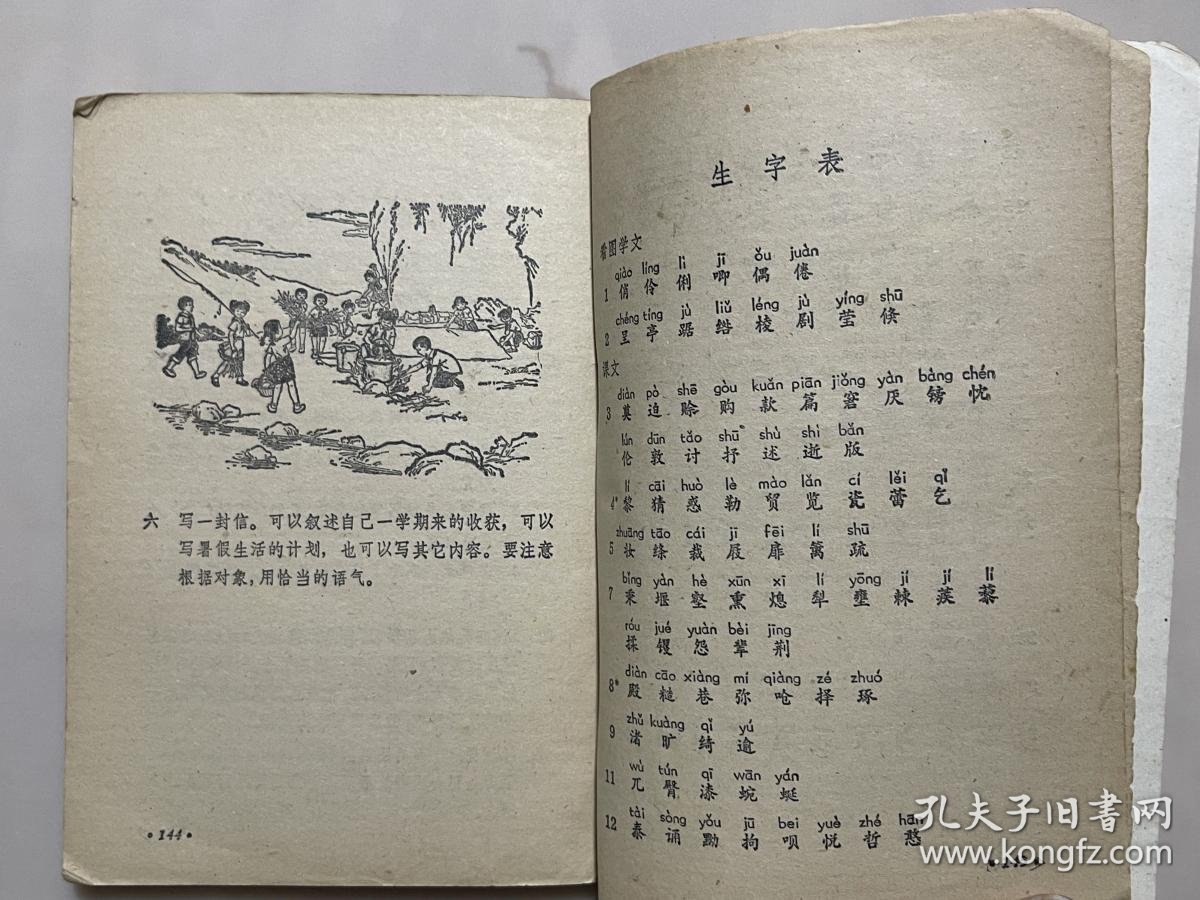 六 写一封信。可以叙述自己一学期来的收获，可以
写暑假生活的计划，也可以写其它内容。要注意
根据对象，用恰当的语气。
·144·
生字表
看图学文
qiào líng lì jī ǒu juàn
1 俏 伶 俐 唧 偶 倦
chéng tíng jù liǔ léng jù yíng shū
2 呈 亭 踞 绺 棱 剧 莹 倏
课文
diàn pò shē gòu kuǎn piān jiǒng yàn bàng chén
3 奠 迫 赊 购 款 篇 窘 厌 镑 忱
lún dūn tǎo shū shù shì bǎn
伦 敦 讨 抒 述 逝 版
lí cāi huò lè mào lǎn cí lěi qǐ
4* 黎 猜 惑 勒 贸 览 瓷 蕾 乞
zhuāng tāo cái jī fēi lí shū
5 妆 绦 裁 屐 扉 篱 疏
bǐng yàn hè xūn xī lí yōng jí jí lí
7 秉 堰 壑 熏 熄 犁 壅 棘 蒺 藜
róu jué yuàn bèi jīng
揉 镢 怨 辈 荆
diàn cāo xiàng mí qiàng zé zhuó
8* 殿 糙 巷 弥 呛 择 琢
zhǔ kuàng qǐ yú
9 渚 旷 绮 逾
wù tún qī wān yán
11 兀 臀 漆 蜿 蜒
tài sòng yǒu jū bei yuè zhé hān
12 泰 诵 黝 拘 呗 悦 哲 憨
孔夫子旧书网
www.kongfz.com